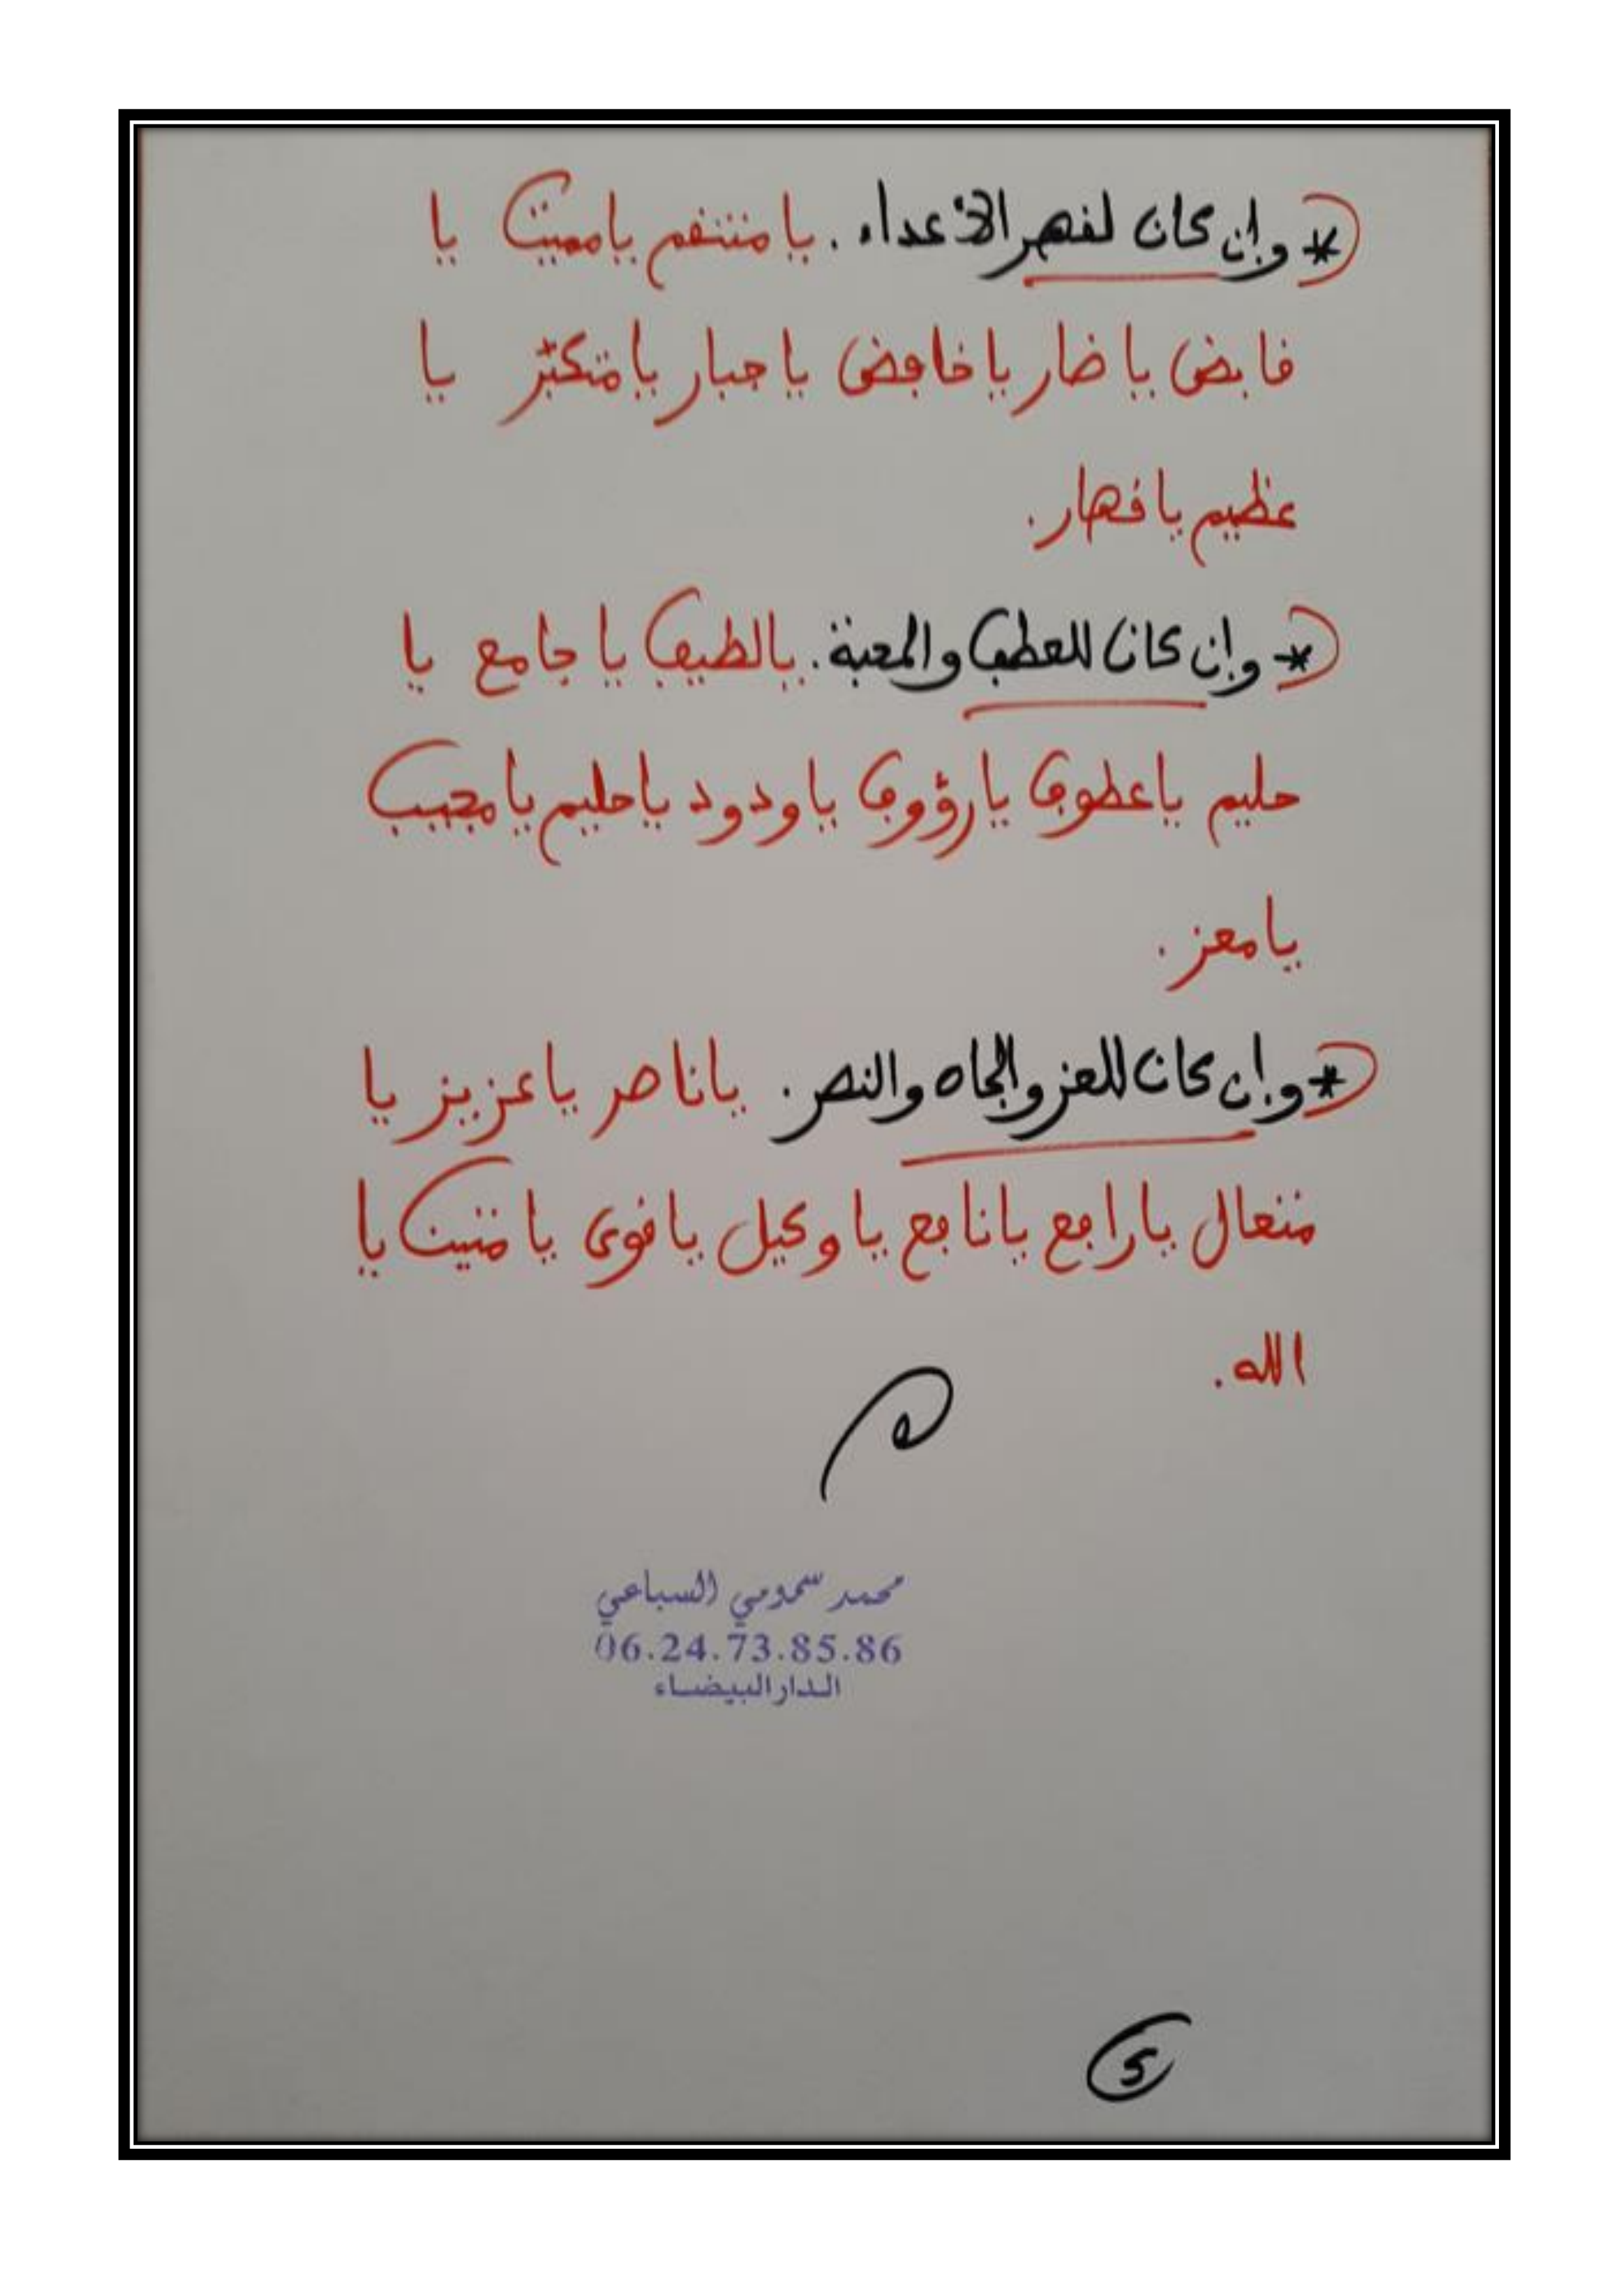 * وإن كان لقهر الأعداء . يا منتقم يا مميت يا
قابض يا ضار يا خافض يا جبار يا متكبّر يا
عظيم يا قهار .
* وإن كان للعطف والمحبة . يالطيف يا جامع يا
حليم يا عطوف يا رؤوف يا ودود يا حليم يا مجيب
يا معز .
* وإن كان للعز والجاه والنصر . يا ناصر يا عزيز يا
متعال يا رافع يا نافع يا وكيل يا قوي يا متين يا
الله .
محمد سمومي السباعي
06.24.73.85.86
الدار البيضاء
5